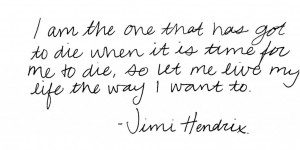 I am the one that has got
to die when it is time for
me to die, so let me live my
life the way I want to.
-Jimi Hendrix.